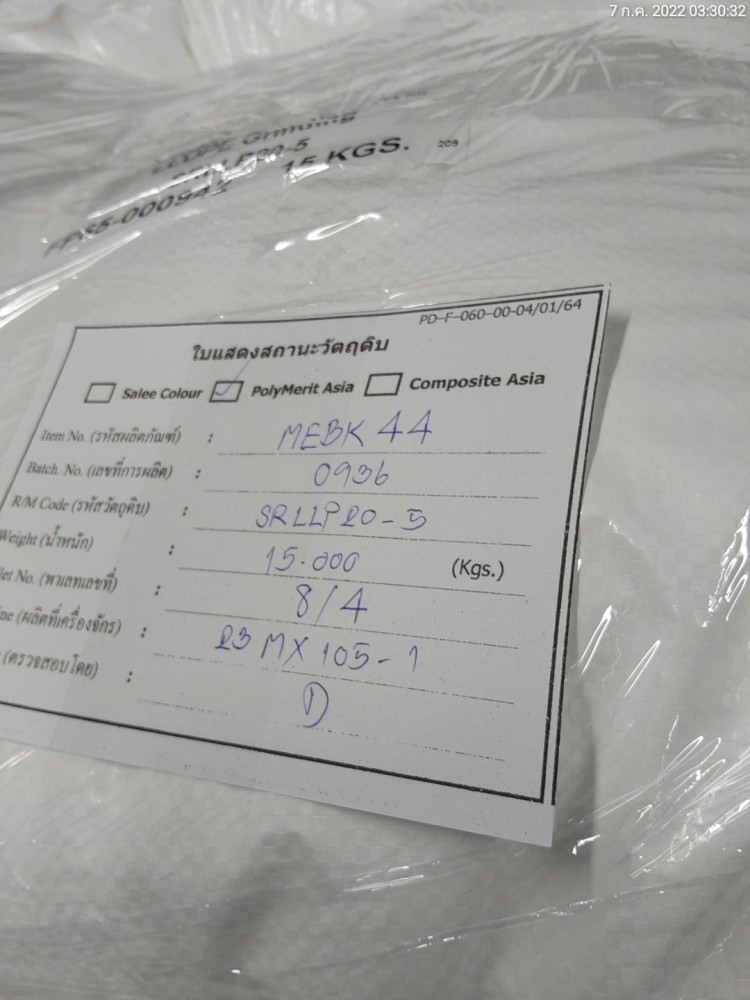 7 ก.ค. 2022 03:30:32
LLDPE Grinding
15 KGS.
209
PD-F-060-00-04/01/64
ใบแสดงสถานะวัตถุดิบ
Salee Colour PolyMerit Asia Composite Asia
Item No. (รหัสผลิตภัณฑ์) : MEBK 44
Batch. No. (เลขที่การผลิต) : 0936
R/M Code (รหัสวัตถุดิบ) : SRLLP20-5
Weight (น้ำหนัก) : 15.000 (Kgs.)
let No. (พาเลทเลขที่) : 8/4
ine (ผลิตที่เครื่องจักร) : 23 MX 105-1
(ตรวจสอบโดย) : D